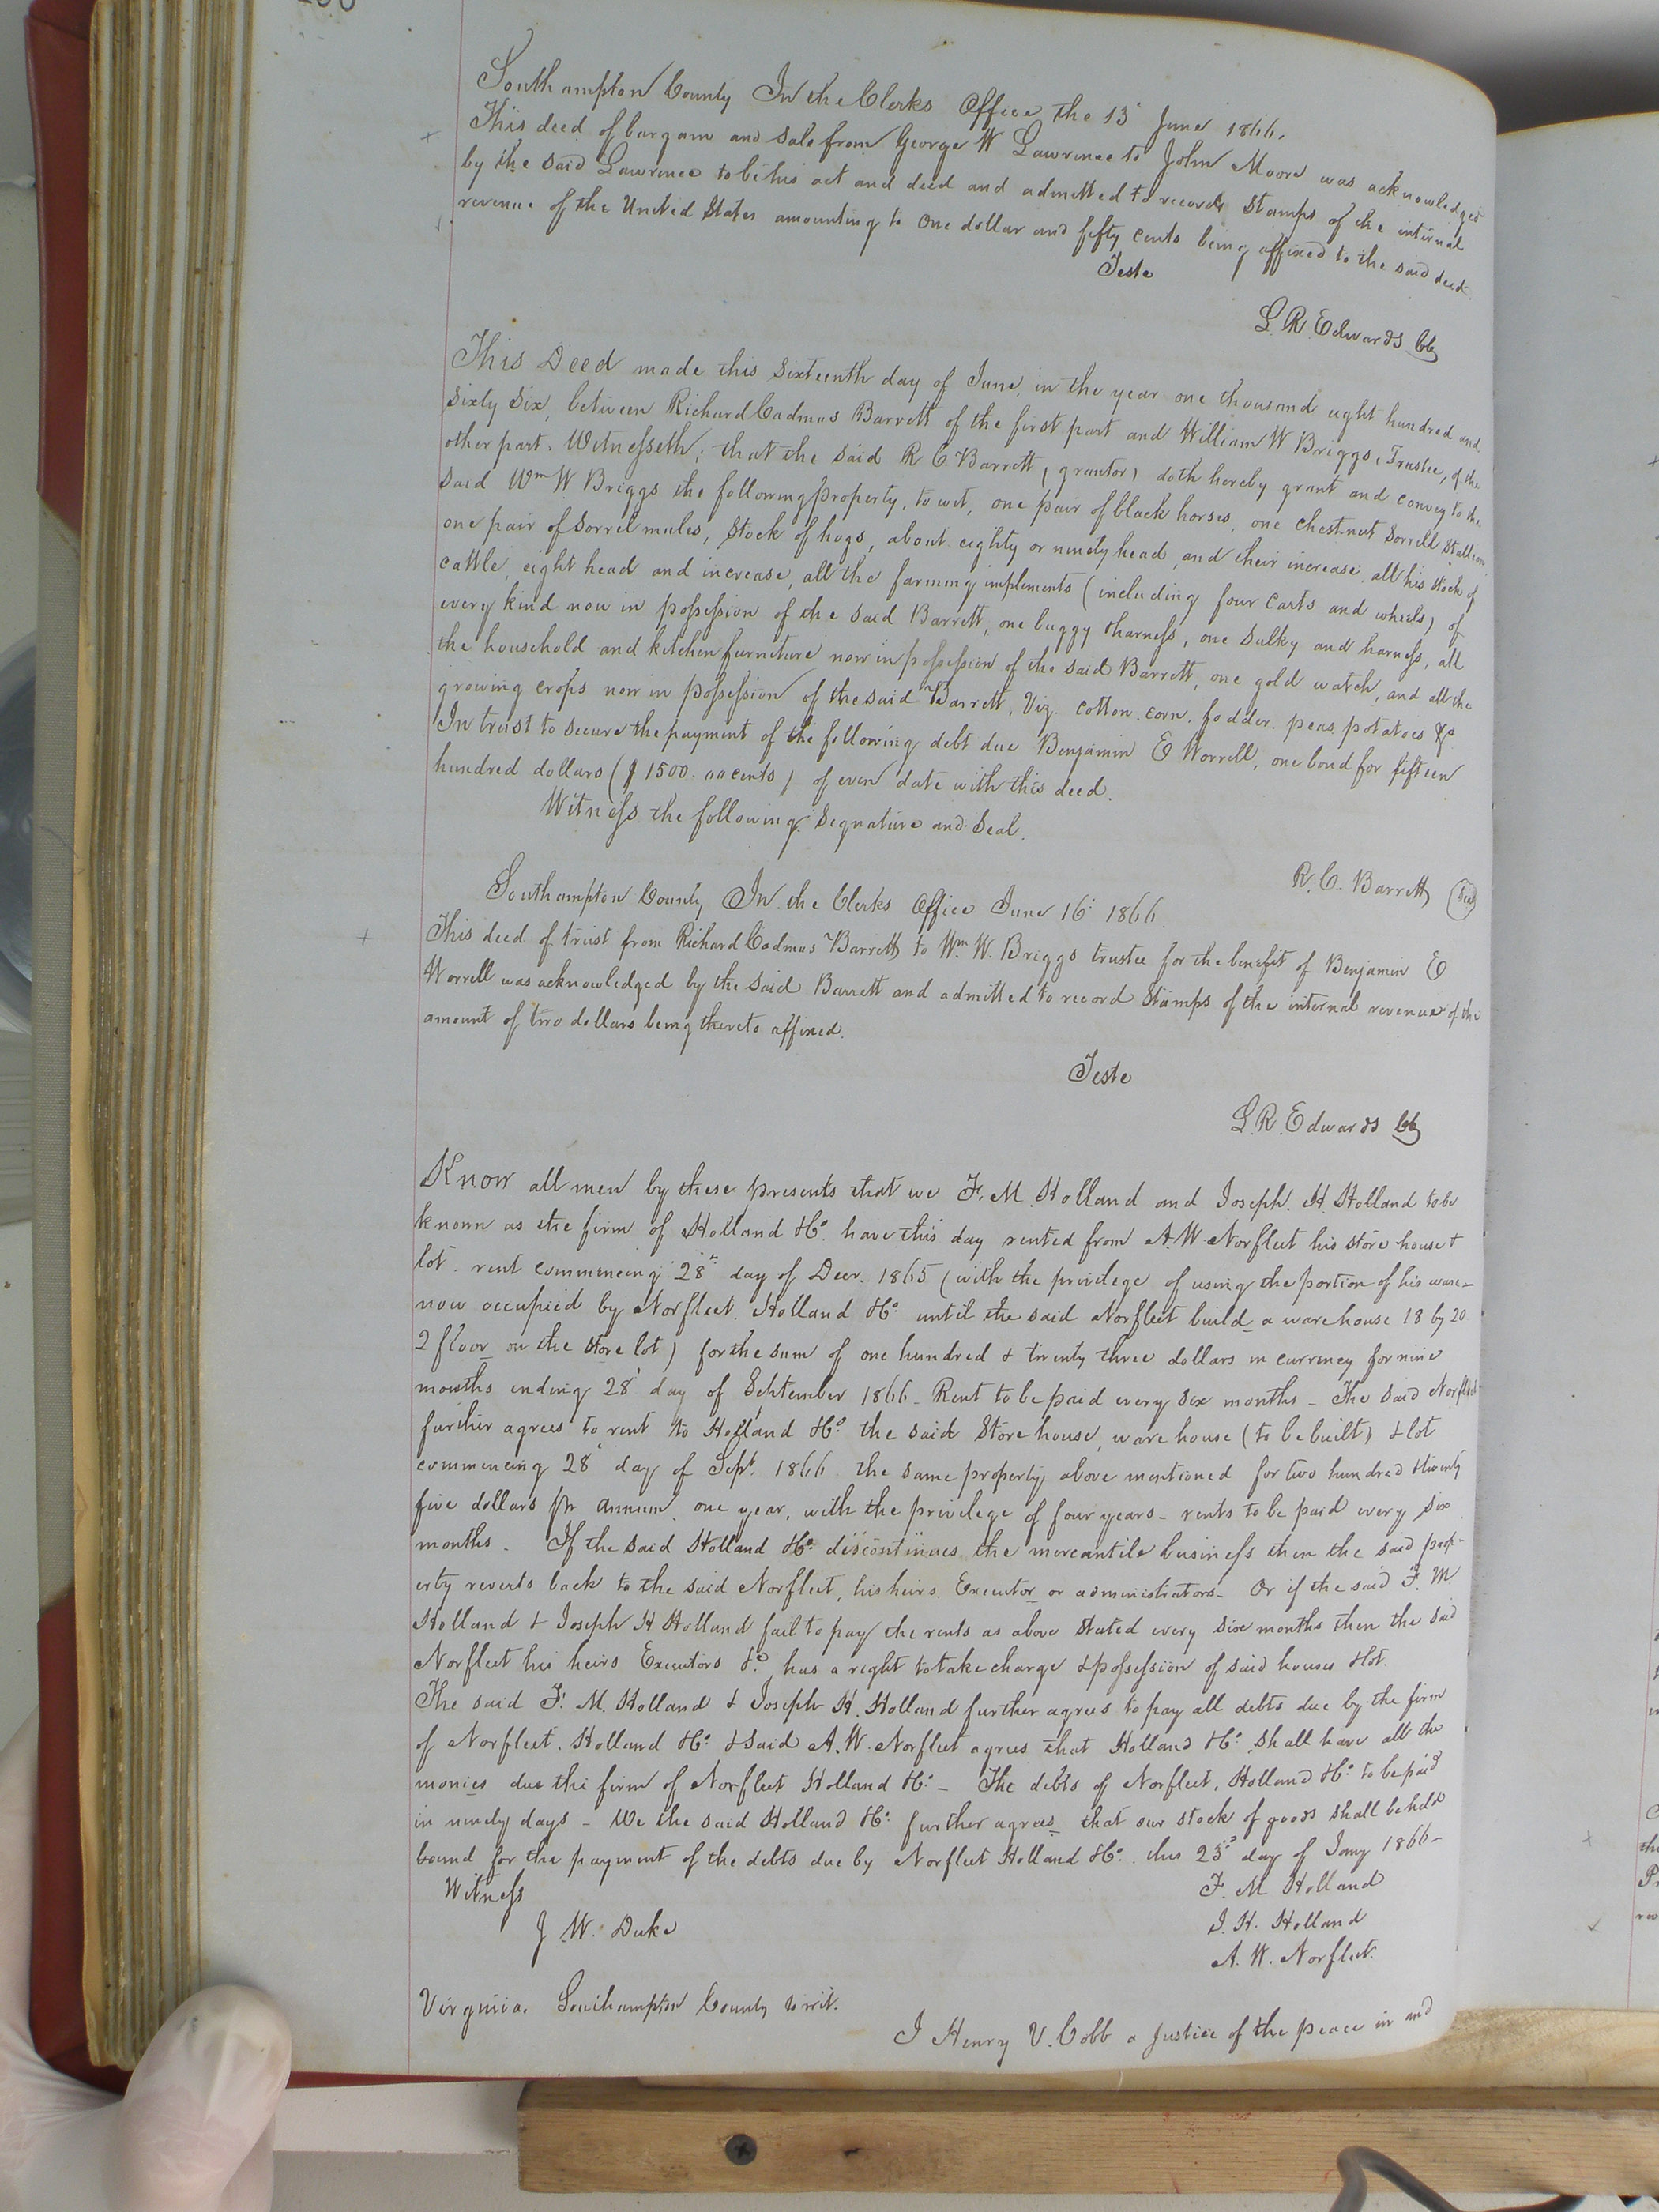 Southampton County In the Clerks Office the 13' June 1866.
This deed of bargain and sale from George W Lawrence to John Moore was acknowledged
by the said Lawrence to be his act and deed and admitted to record stamps of the internal
revenue of the United States amounting to One dollar and fifty cents being affixed to the said deed.
Teste
L. R. Edwards CC
This Deed made this sixteenth day of June, in the year one thousand eight hundred and
sixty six, between Richard Cadmus Barrett of the first part and William W Briggs, Trustee, of the
other part. Witnesseth; that the said R C Barrett (grantor) doth hereby grant and convey to the
said Wm W Briggs the following property, to wit, one pair of black horses, one chestnut Sorrell Stallion
one pair of Sorril mules, Stock of hogs, about eighty or ninety head, and their increase, all his stock of
cattle, eight head and increase, all the farming implements (including four carts and wheels) of
every kind now in possession of the said Barrett, one buggy & harness, one sulky and harness, all
the household and kitchen furniture now in possession of the said Barrett, one gold watch, and all the
growing crops now in possession of the said Barrett, Viz. cotton. corn. fodder. peas, potatoes &c
In trust to secure the payment of the following debt due Benjamin E Worrell, one bond for fifteen
hundred dollars ($1500. 00 cents) of even date with this deed.
Witness the following Signature and Seal.
R. C. Barrett Seal
Southampton County In the Clerks Office June 16' 1866.
This deed of trust from Richard Cadmus Barrett to Wm. W. Briggs trustee for the benefit of Benjamin E
Worrell was acknowledged by the said Barrett and admitted to record Stamps of the internal revenue of the
amount of two dollars being thereto affixed.
Teste
L. R. Edwards CC
Know all men by these presents that we F. M. Holland and Joseph. H. Holland to be
known as the firm of Holland & Co. have this day rented from A. W. Norfleet his store house &
lot. rent commencing 28th day of Decr. 1865 (with the privilege of using the portion of his ware-
now occupied by Norfleet. Holland & Co. until the said Norfleet build a warehouse 18 by 20
2 floor on the store lot) for the sum of one hundred & twenty three dollars in currency for nine
months ending 28' day of September 1866 - Rent to be paid every six months - The said Norfleet
further agrees to rent to Holland & Co. the said Store house, ware house (to be built) & lot
commencing 28' day of Sept. 1866 the same property above mentioned for two hundred & twenty
five dollars pr annum. one year, with the privilege of four years - rents to be paid every six
months. If the said Holland & Co. discontinues the mercantile business then the said prop-
erty reverts back to the said Norfleet, his heirs. Executor or administrators - Or if the said F. M
Holland & Joseph H Holland fail to pay the rents as above stated every six months then the said
Norfleet his heirs Executors &c. has a right to take charge & possession of said houses & lot.
The said F. M. Holland & Joseph H. Holland further agrees to pay all debts due by the firm
of Norfleet. Holland & Co. & said A. W. Norfleet agrees that Holland & Co. shall have all the
monies due the firm of Norfleet Holland & Co. - The debts of Norfleet, Holland & Co. to be paid
in ninety days - We the said Holland & Co. further agrees that our stock of goods shall be held
bound for the payment of the debts due by Norfleet Holland & Co. this 25' day of Jany 1866 -
Witness F. M Holland
J W. Duke J. H. Holland
A. W. Norfleet.
Virginia. Southampton County to wit.
I Henry V. Cobb a justice of the peace in and